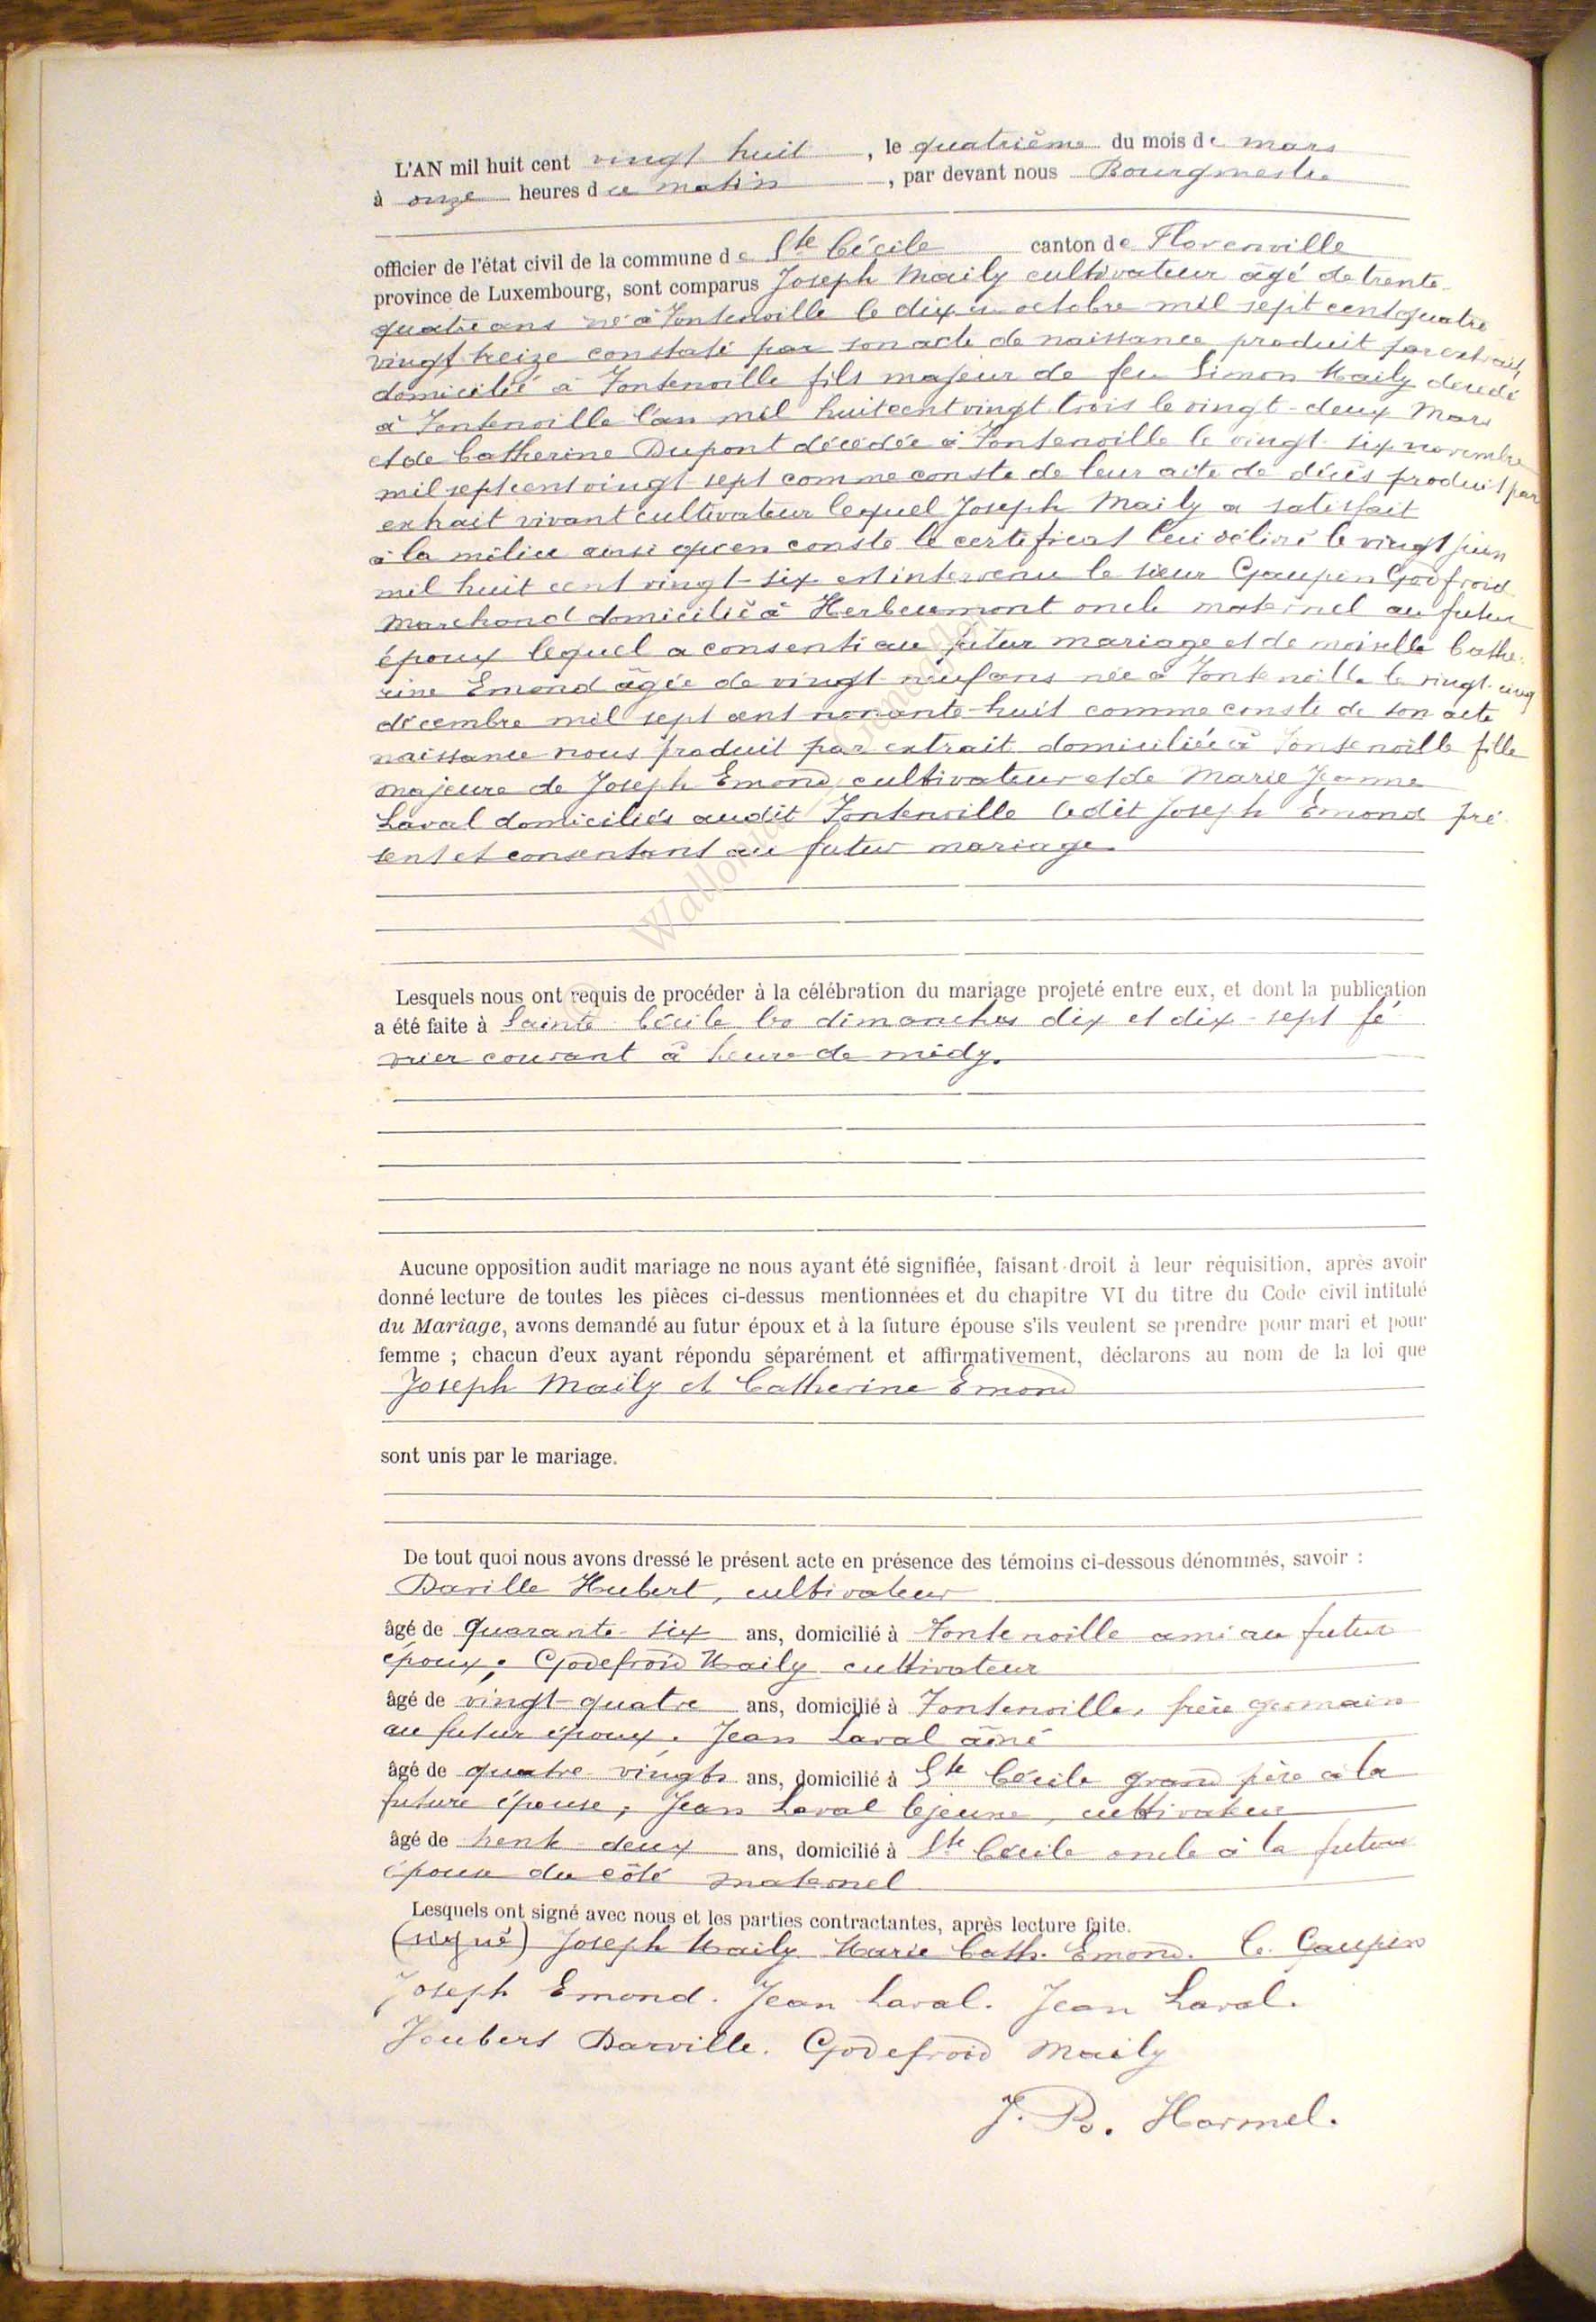 L'AN mil huit cent vingt huit, le quatrième du mois de mars
à onze heures du matin, par devant nous Bourgmestre
officier de l'état civil de la commune de Ste Cécile canton de Florenville
province de Luxembourg, sont comparus Joseph Maily cultivateur âgé de trente
quatre ans né à Fontenoille le dix octobre mil sept cent quatre
vingt treize constaté par son acte de naissance produit par extrait,
domicilié à Fontenoille fils majeur de feu Simon Maily décédé
à Fontenoille l'an mil huit cent vingt trois le vingt-deux Mars
et de Catherine Dupont décédée à Fontenoille le vingt-six novembre
mil sept cent vingt-sept comme conste de leur acte de décès produit par
extrait vivant cultivateur lequel Joseph Maily a satisfait
à la milice ainsi qu'en conste le certificat lui délivré le vingt juin
mil huit cent vingt-six est intervenu le sieur Gaupin Godfroid
marchand domicilié à Herbeumont oncle maternel au futur
époux lequel a consenti au futur mariage et demoiselle Cathe-
rine Emond âgée de vingt-neuf ans née à Fontenoille le vingt-cinq
décembre mil sept cent nonante-huit comme conste de son acte
naissance nous produit par extrait domiciliée à Fontenoille fille
majeure de Joseph Emond, cultivateur et de Marie Jeanne
Laval domiciliés audit Fontenoille ledit Joseph Emond pré-
sent et consentant au futur mariage
Lesquels nous ont requis de procéder à la célébration du mariage projeté entre eux, et dont la publication
a été faite à Sainte-Cécile les dimanches dix et dix-sept fé-
vrier courant à heure de midy.
Aucune opposition audit mariage ne nous ayant été signifiée, faisant droit à leur réquisition, après avoir
donné lecture de toutes les pièces ci-dessus mentionnées et du chapitre VI du titre du Code civil intitulé
du Mariage, avons demandé au futur époux et à la future épouse s'ils veulent se prendre pour mari et pour
femme ; chacun d'eux ayant répondu séparément et affirmativement, déclarons au nom de la loi que
Joseph Maily et Catherine Emond
sont unis par le mariage.
De tout quoi nous avons dressé le présent acte en présence des témoins ci-dessous dénommés, savoir :
Darille Hubert, cultivateur
âgé de quarante-six ans, domicilié à Fontenoille ami au futur
époux; Godefroid Maily cultivateur
âgé de vingt-quatre ans, domicilié à Fontenoille, frère germain
au futur époux. Jean Laval aîné
âgé de quatre-vingts ans, domicilié à Ste Cécile grand père à la
future épouse; Jean Laval lejeune, cultivateur
âgé de trente-deux ans, domicilié à Ste Cécile oncle à la future
épouse du côté maternel
Lesquels ont signé avec nous et les parties contractantes, après lecture faite.
(signé) Joseph Maily Marie Cath. Emond. C. Gaupin
Joseph Emond. Jean Laval. Jean Laval.
Houbert Darville. Godefroid Maily
J. B. Hormel.